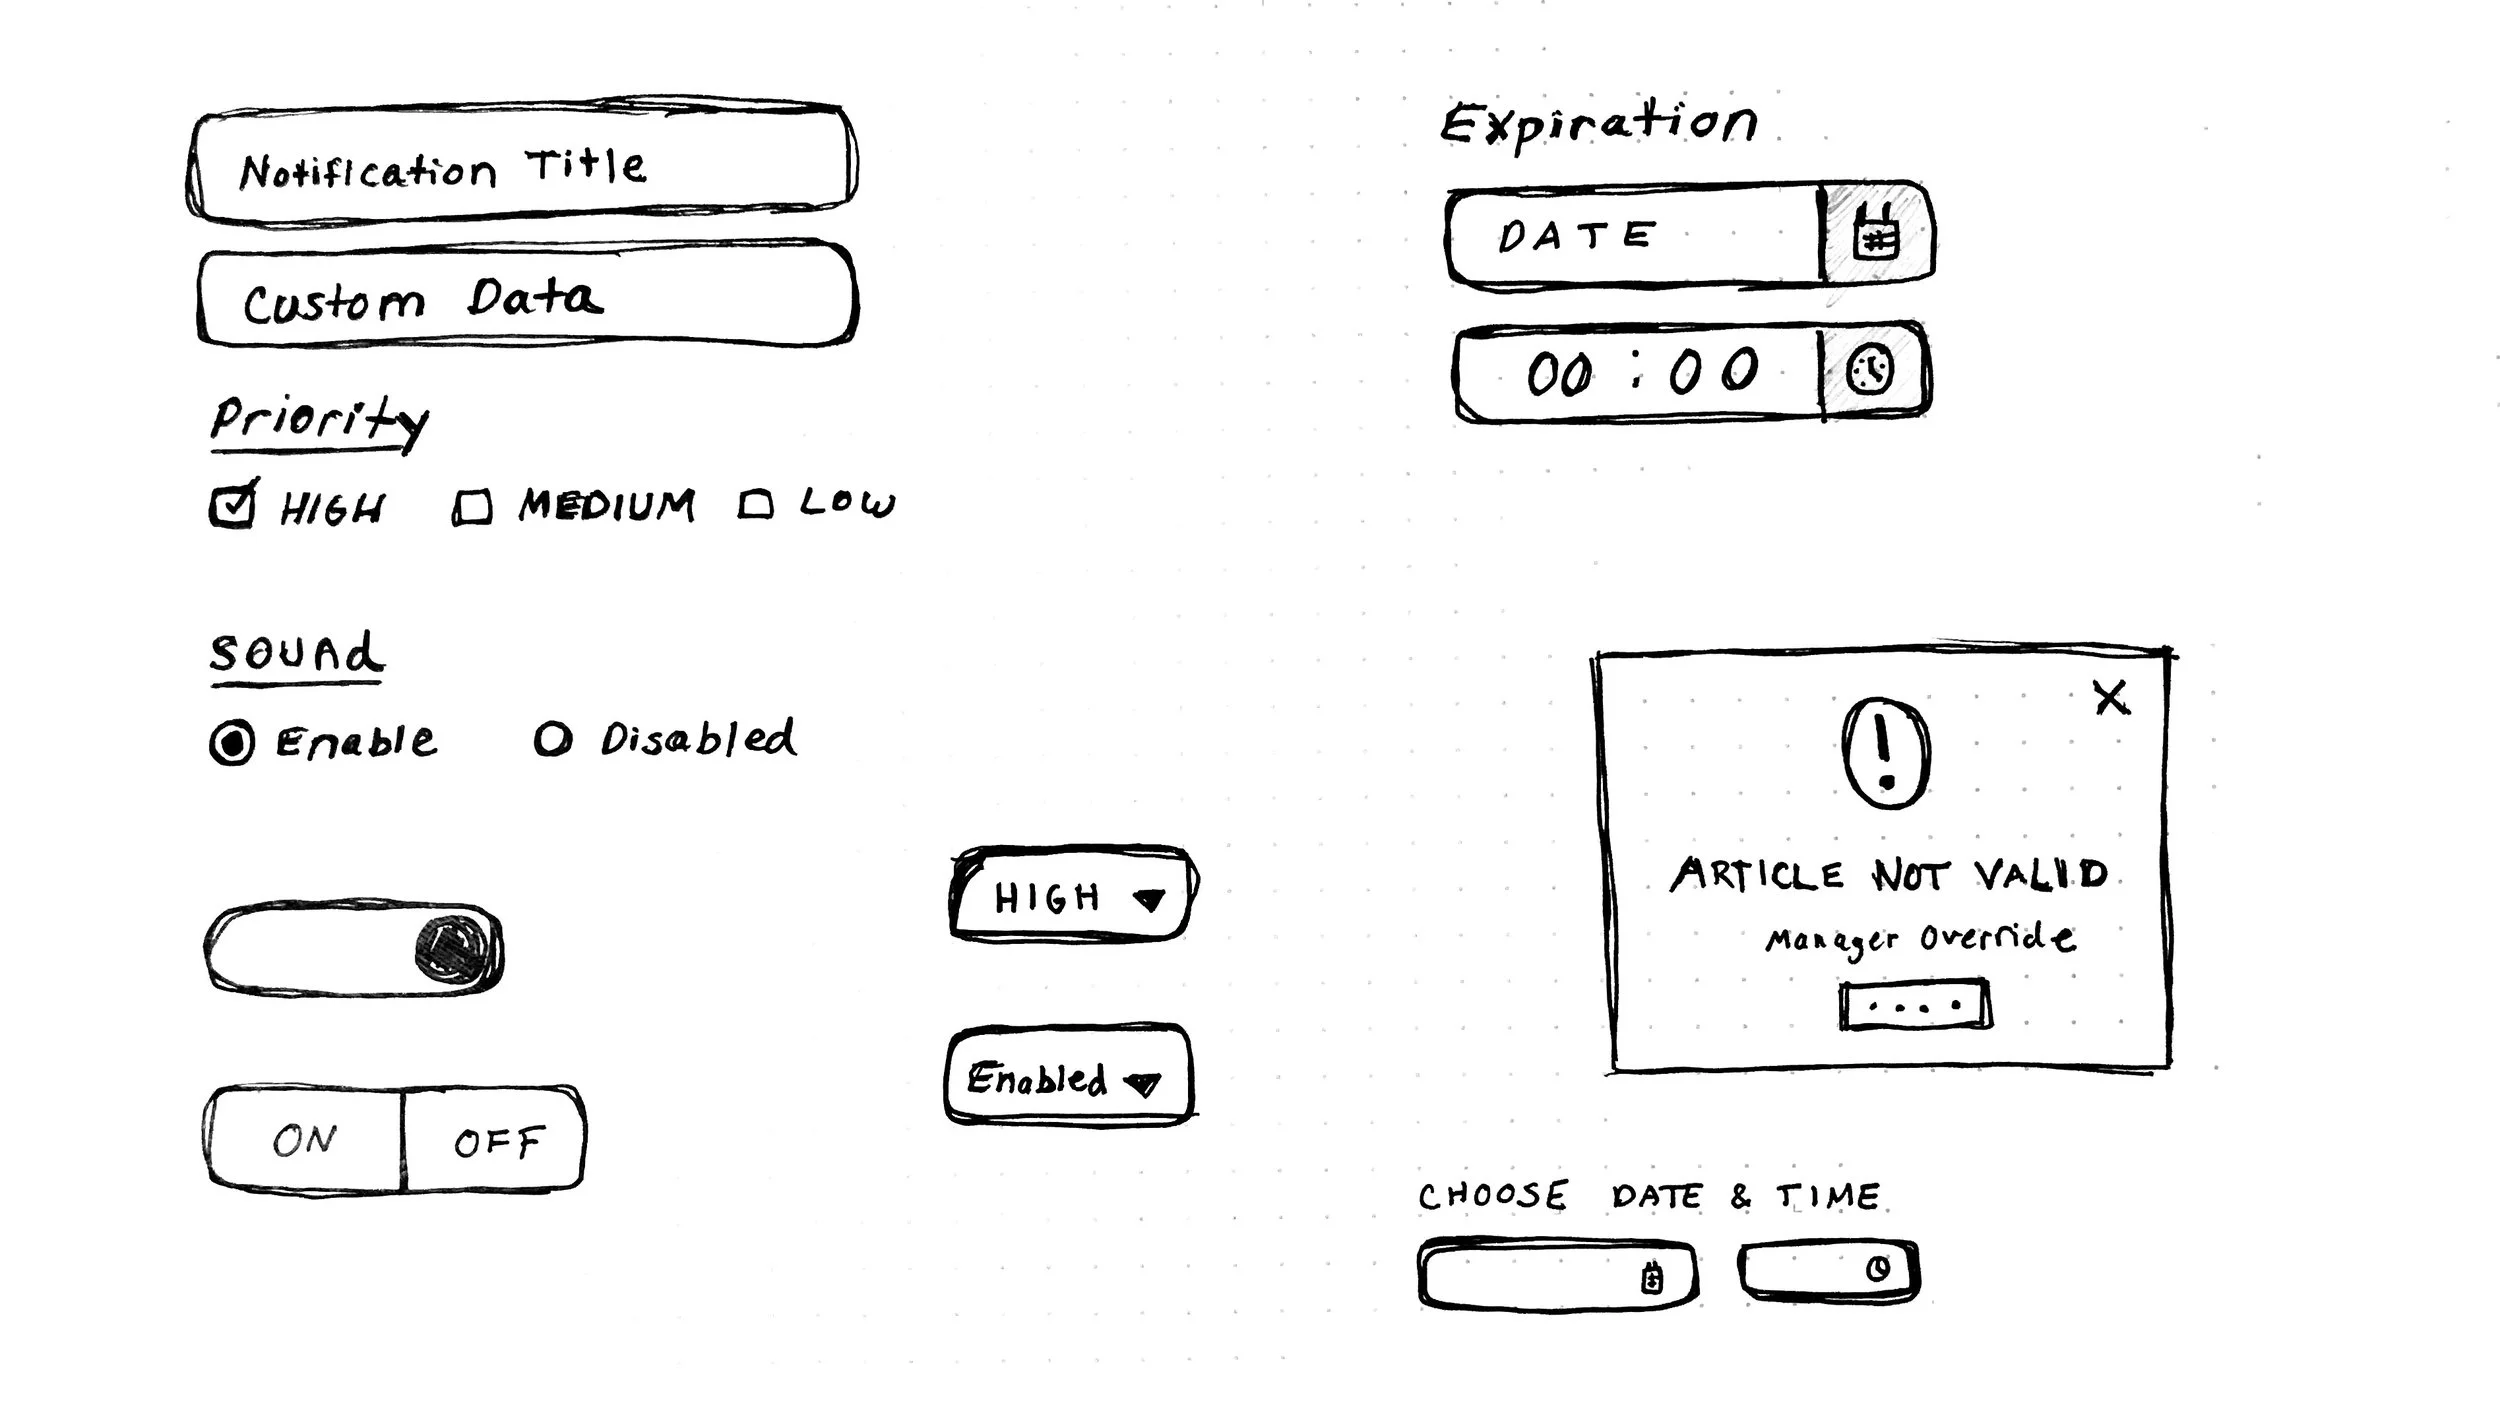 Notification Title
Custom Data
Priority
HIGH MEDIUM LOW
Sound
Enable Disabled
ON OFF
HIGH
Enabled
Expiration
DATE
00:00
!
X
ARTICLE NOT VALID
Manager Override
....
CHOOSE DATE & TIME